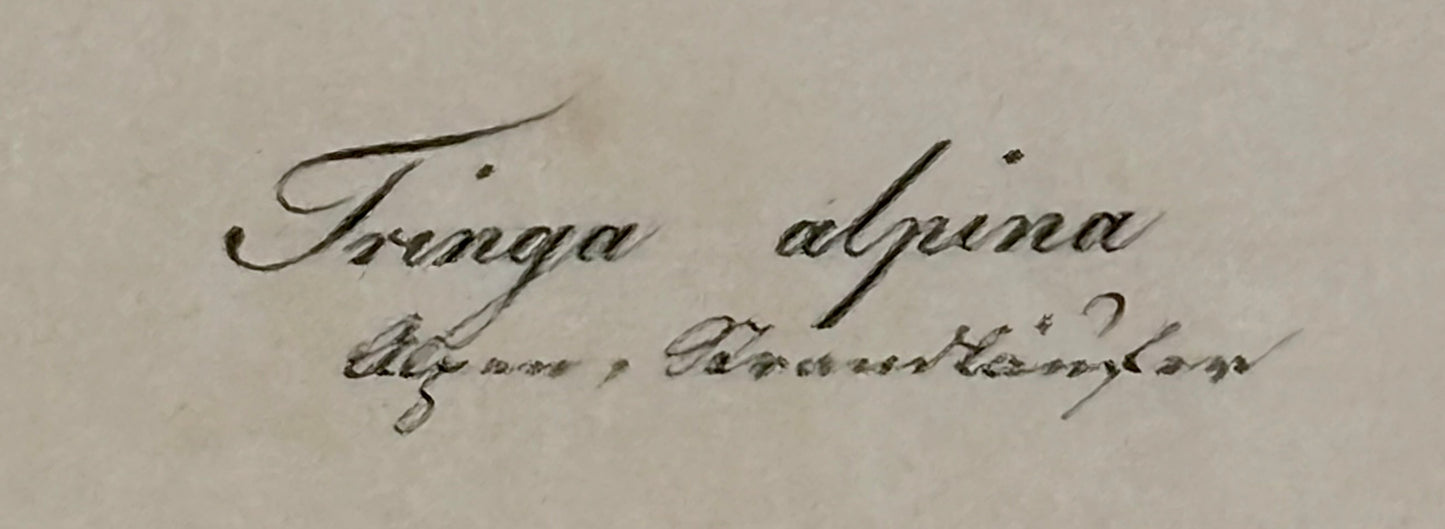 Tringa alpina
Alpen, Strandläufer